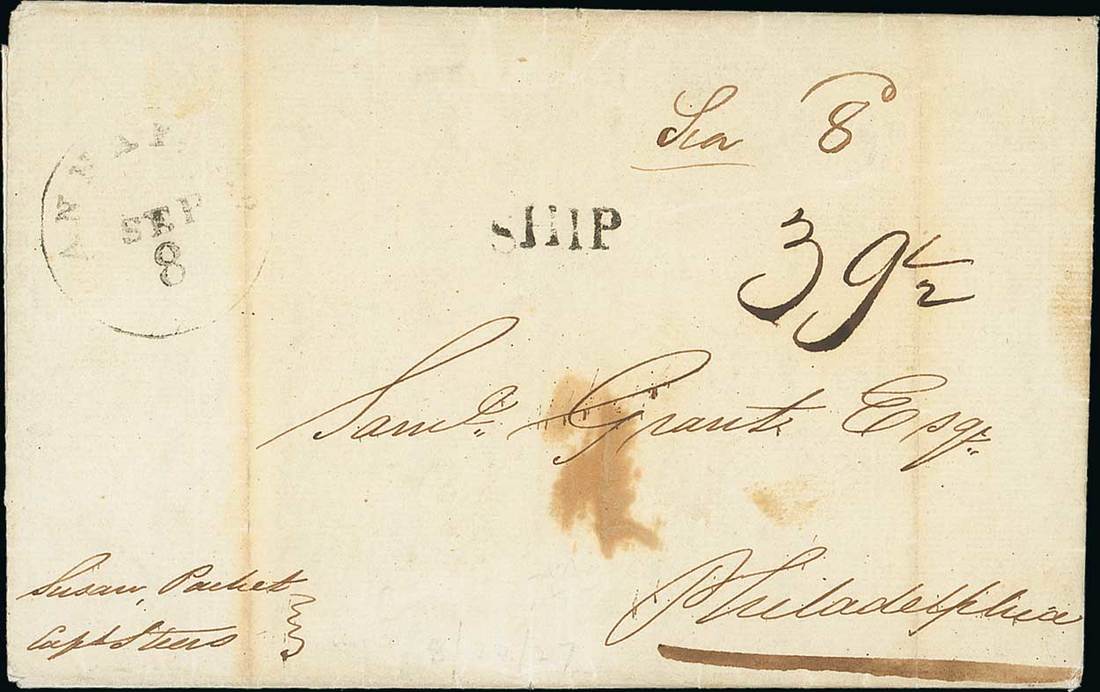 Sea 8
SEP
8
SHIP
39 1/2
Saml. Grant Esqr.
Susan, Packet
Capt
Philadelphia